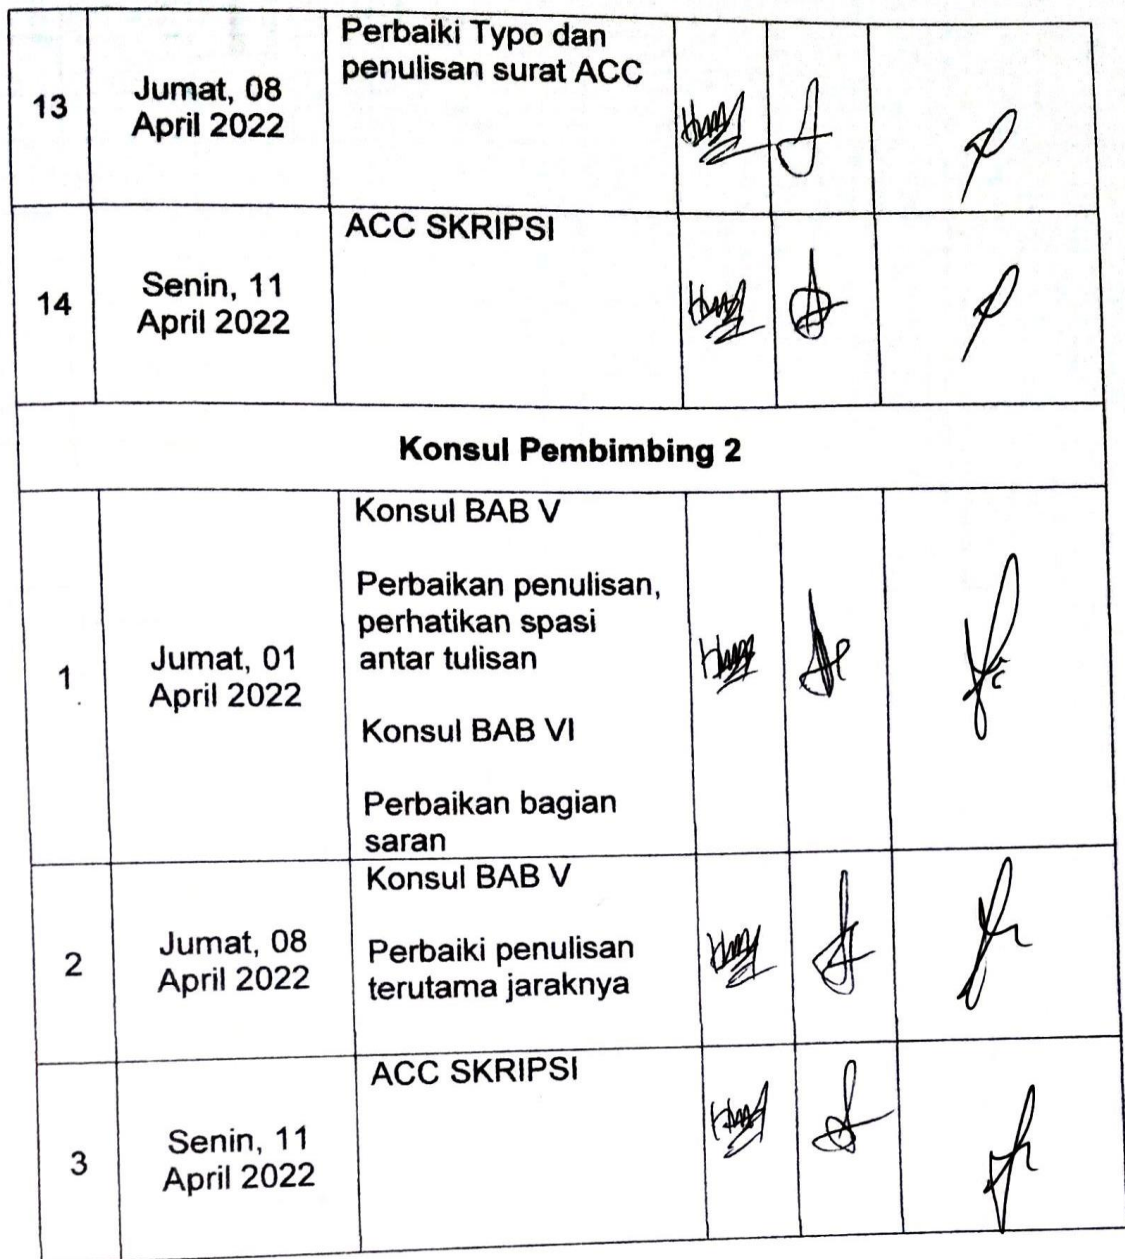 13
Jumat, 08
April 2022
Perbaiki Typo dan
penulisan surat ACC
14
Senin, 11
April 2022
ACC SKRIPSI
Konsul Pembimbing 2
1
Jumat, 01
April 2022
Konsul BAB V
Perbaikan penulisan,
perhatikan spasi
antar tulisan
Konsul BAB VI
Perbaikan bagian
saran
2
Jumat, 08
April 2022
Konsul BAB V
Perbaiki penulisan
terutama jaraknya
3
Senin, 11
April 2022
ACC SKRIPSI